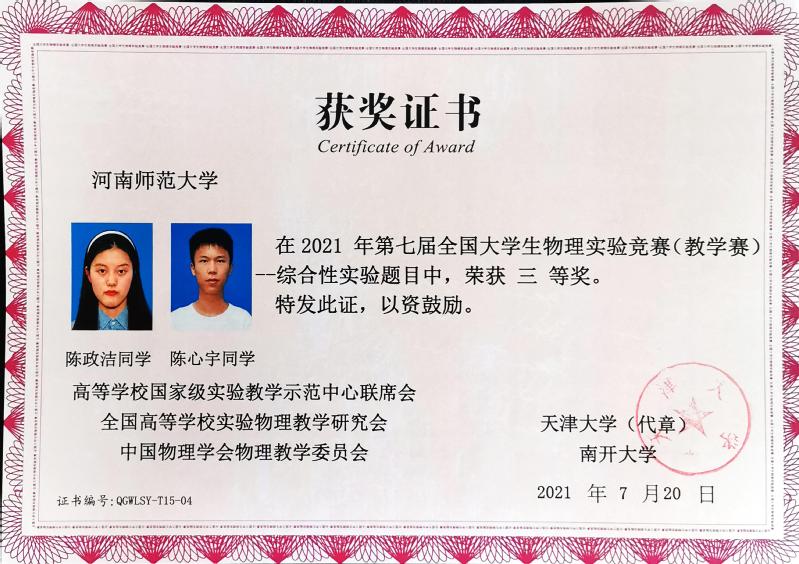 获奖证书
Certificate of Award
河南师范大学
在2021 年第七届全国大学生物理实验竞赛(教学赛)
--综合性实验题目中，荣获 三 等奖。
特发此证，以资鼓励。
陈政洁同学 陈心宇同学
高等学校国家级实验教学示范中心联席会
全国高等学校实验物理教学研究会
中国物理学会物理教学委员会
天津大学（代章）
南开大学
2021 年 7 月20 日
证书编号：QGWLSY-T15-04